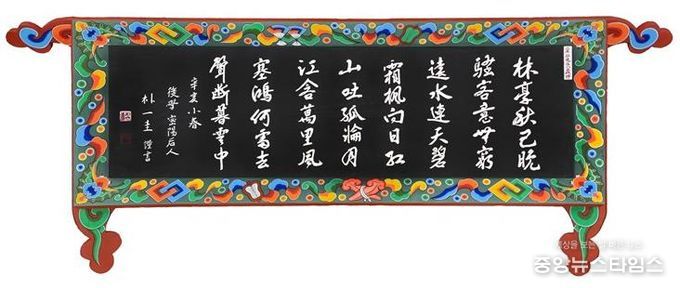 林亭秋已晚
騷客意無窮
遠水連天碧
霜楓向日紅
山吐孤輪月
江含萬里風
塞鴻何處去
聲斷暮雲中
辛亥小春
後學 密陽后人
朴一圭 謹書
중앙뉴스타임스